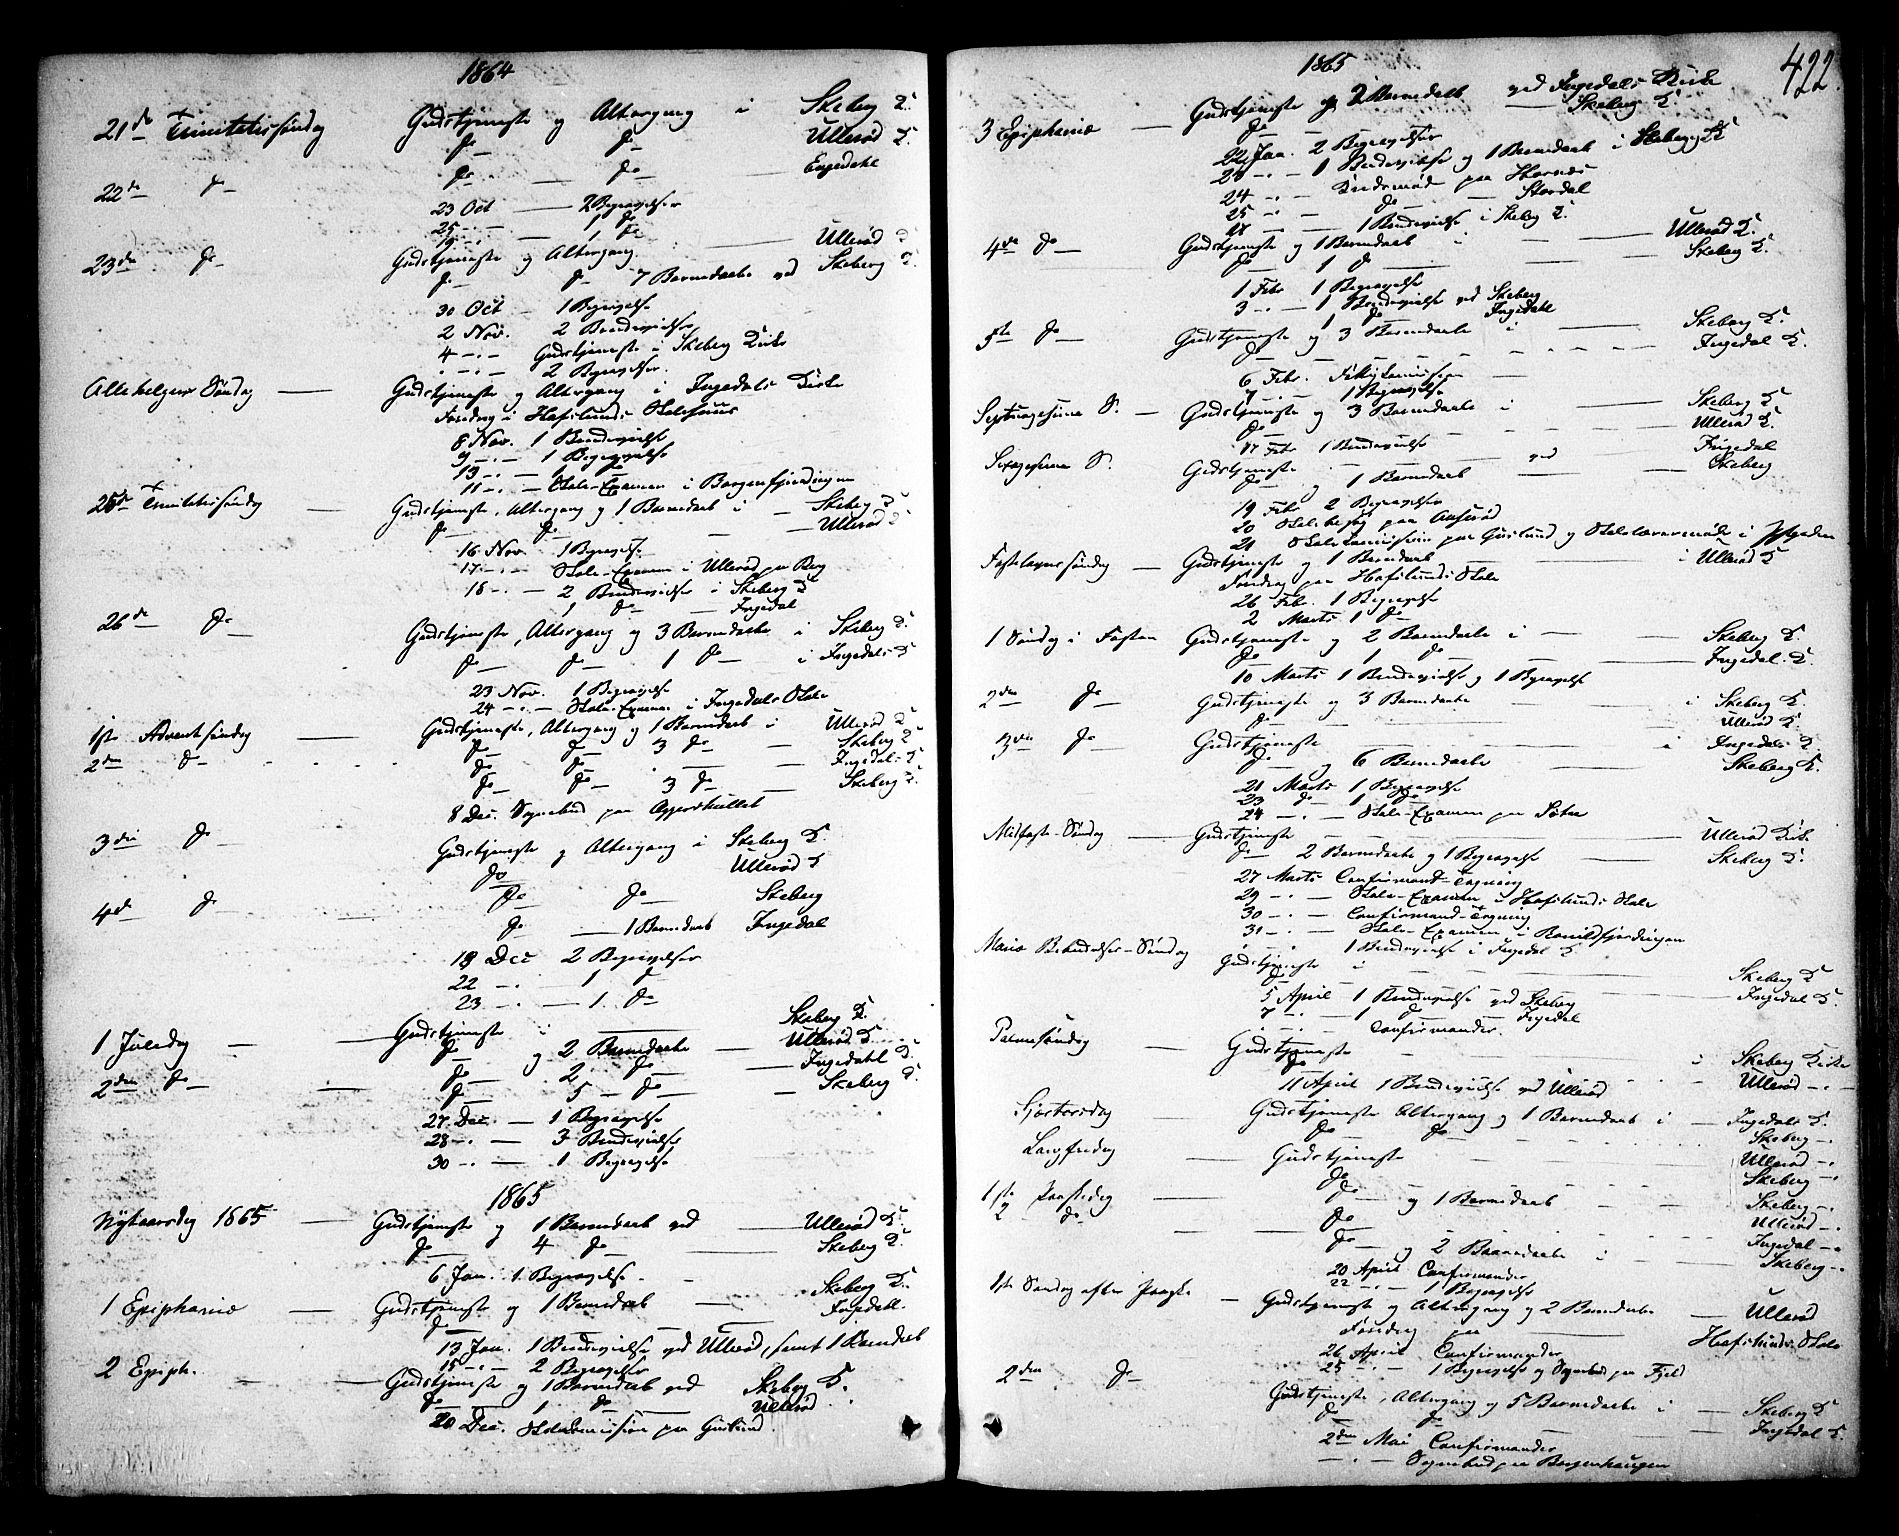 1864
21de Trinitatissøndag Gudstjeneste og Altergang i Skeberg K.
do do Ullerød K.
22de do do do Engedahl
23 Oct 2 Begravelser
25 -"- 1 do
19 -"- 1 do
23de do Gudstjeneste og Altergang Ullerød K.
do do 7 Barnedaabe ved Skeberg K.
30 Oct 1 Begravelse
2 Nov. 2 Brudevielser
4 -"- Gudstjeneste i Skeberg Kirke
-"- 2 Begravelser.
Allehelgens Søndag Gudstjeneste og Altergang i Ingedals Kirke
Foredrag i Hafslunds Skolehuus
8 Nov. 1 Brudevielse
9 -"- 1 Begravelse
13 -"- 1 do
11 -"- Skole-Examen i Borgenfjerdingen
25de Trinitatissøndag Gudstjeneste, Altergang og 1 Barnedaab i Skeberg K
do do Ullerød K
16 Nov. 1 Begravelse
17 -"- Skole-Examen i Ullerød paa Berg
18 -"- 2 Brudevielser i Skeberg K
1 do Ingedal
26de do Gudstjeneste, Altergang og 3 Barnedaabe i Skeberg K.
do do 1 do i Ingedals K
23 Nov. 1 Begravelse
24 -"- Skole-Examen i Ingedals Skole
1ste Adventssøndag Gudstjeneste, Altergang og 1 Barnedaab i Ullerød K
do do 3 do Skeberg K
2den do do do Ingedals K
do do 3 do Skeberg K.
8 Dec. Sognebud paa
3die do Gudstjeneste og Altergang i Skeberg K.
do Ullerød K
4de do do do Skeberg
do 1 Barnedaab Ingedal
18 Dec 2 Begravelser
22 -"- 1 do
23 -"- 1 do
1 Juledag Gudstjeneste i Skeberg K.
do og 2 Barnedaabe Ullerød K.
2den do do 2 do Ingedahl K.
do 5 do Skeberg K.
27 Dec. 1 Begravelse
28 -"- 3 Brudevielser
30 -"- 1 Begravelse
1865
Nytaarsdag 1865 Gudstjeneste og 1 Barnedaab ved Ullerød K.
do 4 do Skeberg K.
6 Jan. 1 Begravelse
1 Epiphaniæ Gudstjeneste og 1 Barnedaab Skeberg K.
do Ingedahl.
13 Jan. 1 Brudevielse ved Ullerød, samt 1 Barnedaab
15 -"- 2 Begravelser
2 Epiph. Gudstjeneste og 1 Barnedaab ved Skeberg K.
do 1 do Ullerød
20 Dec. Skolekommission paa Guslund
1865
422.
3 Epiphaniæ Gudstjeneste og 2 Barnedaab ved Ingedals Kirke
do Skeberg K.
22 Jan. 2 Begravelser
1 Brudevielse og 1 Barnedaab i Skeberg K
24 -"- paa Stornes
25 -"- do Stordal
1 Brudevielse i Skeberg K.
4de do Gudstjeneste og 1 Barnedaab i Ullerød K.
do 1 do Skeberg K.
1 Febr 1 Begravelse
3 -"- 1 Brudevielse ved Skeberg
1 do Ingedahl
5te do Gudstjeneste og 3 Barnedaabe i Skeberg K.
do Ingedal K.
6 Febr.
7 -"- 1 Begravelse
Septuagesima S. Gudstjeneste og 3 Barnedaabe i Skeberg K
do Ullerød K.
17 Febr 1 Brudevielse
Sexagesima S. Gudstjeneste ved Ingedal
do og 1 Barnedaab Skeberg
19 Febr 2 Begravelser
20 Skolebesøg paa
21 Skolekommission paa Guslund og Skolelærermøde i
Fastelavnssøndag Gudstjeneste og 1 Barnedaab i Ullerød K
Foredrag paa Hafslunds Skole
26 Febr. 1 Begravelse
2 Marts 1 do
1 Søndag i Fasten Gudstjeneste og 2 Barnedaabe i Skeberg K.
do 1 do Ingedal. K.
10 Marts 1 Brudevielse og 1 Begravelse
2den do Gudstjeneste og 3 Barnedaabe i Skeberg K.
do Ullerød K.
3die do Gudstjeneste i Ingedals K.
do og 6 Barnedaabe Skeberg K.
21 Marts 1 Begravelse
23 do 1 do
24 -"- Skole-Examen paa
Midfaste-Søndag Gudstjeneste Ullerød Kirke
do 2 Barnedaabe og 1 Begravelse Skeberg K.
27 Marts Confirmand-Tegning
29 -"- Skole-Examen i Hafslunds Skole
30 -"- Confirmand-Tegning
31 -"- Skole-Examen i
-"- 1 Brudevielse i Ingedal K.
Mariæ Bebudelses-Søndag Gudstjeneste i Skeberg K
do Ingedal K.
5 April 1 Brudevielse ved Skeberg
7 -"- 1 do Ingedal
-"- Confirmander.
Palmesøndag Gudstjeneste i Skeberg Kirke
do Ullerød -"-
11 April 1 Brudevielse ved Ullerød
Skjærtorsdag Gudstjeneste Altergang og 1 Barnedaab i Ingedals K.
do do Skeberg -"-
Langfredag Gudstjeneste Ullerød -"-
do Skeberg -"-
1ste Paaskedag do og 1 Barnedaab Skeberg -"-
2 do do Ullerød -"-
do Ingedal -"-
do og 2 Barnedaabe i Skeberg -"-
20 April Confirmander
22 -"- 1 Begravelse
1ste Søndag efter Paaske Gudstjeneste og Altergang og 2 Barnedaabe Ullerød
Foredrag paa Hafslunds Skole
26 April Confirmander
25 -"- 1 Begravelse og Sognebud paa Fjeld
2den do Gudstjeneste, Altergang og 5 Barnedaabe i Skeberg K
do do Ingedal K.
2den Mai Confirmander
-"- Sognebud paa Borgenhaugen